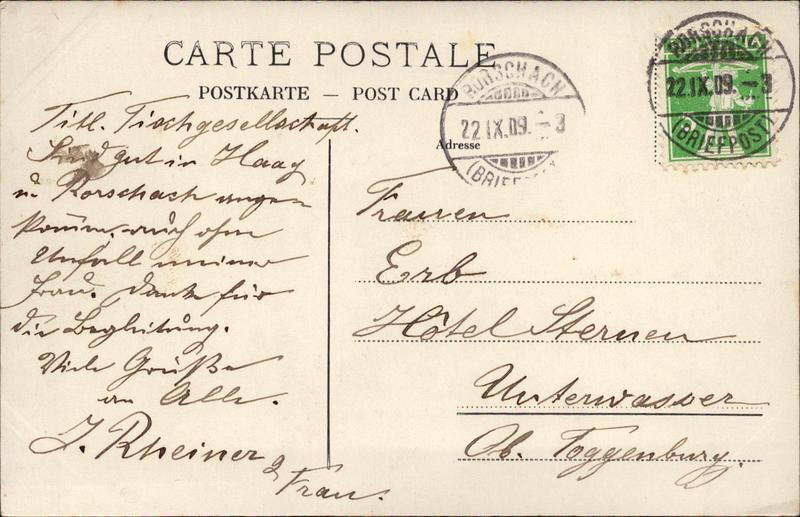 CARTE POSTALE
POSTKARTE — POST CARD
Adresse
RORSCHACH
22.IX.09. - 3
(BRIEFPOST)
RORSCHACH
22.IX.09. - 3
(BRIEFPOST)
Titl. Tischgesellschaft.
Sind gut in Haag
u. Rorschach angekommen, auch ohne
Unfall meiner
Frau. Danke für
die Begleitung.
Viele Grüße
an Alle.
J. Rheiner
& Frau.
Frauen
Erb
Hôtel Sternen
Unterwasser
Ob. Toggenburg.